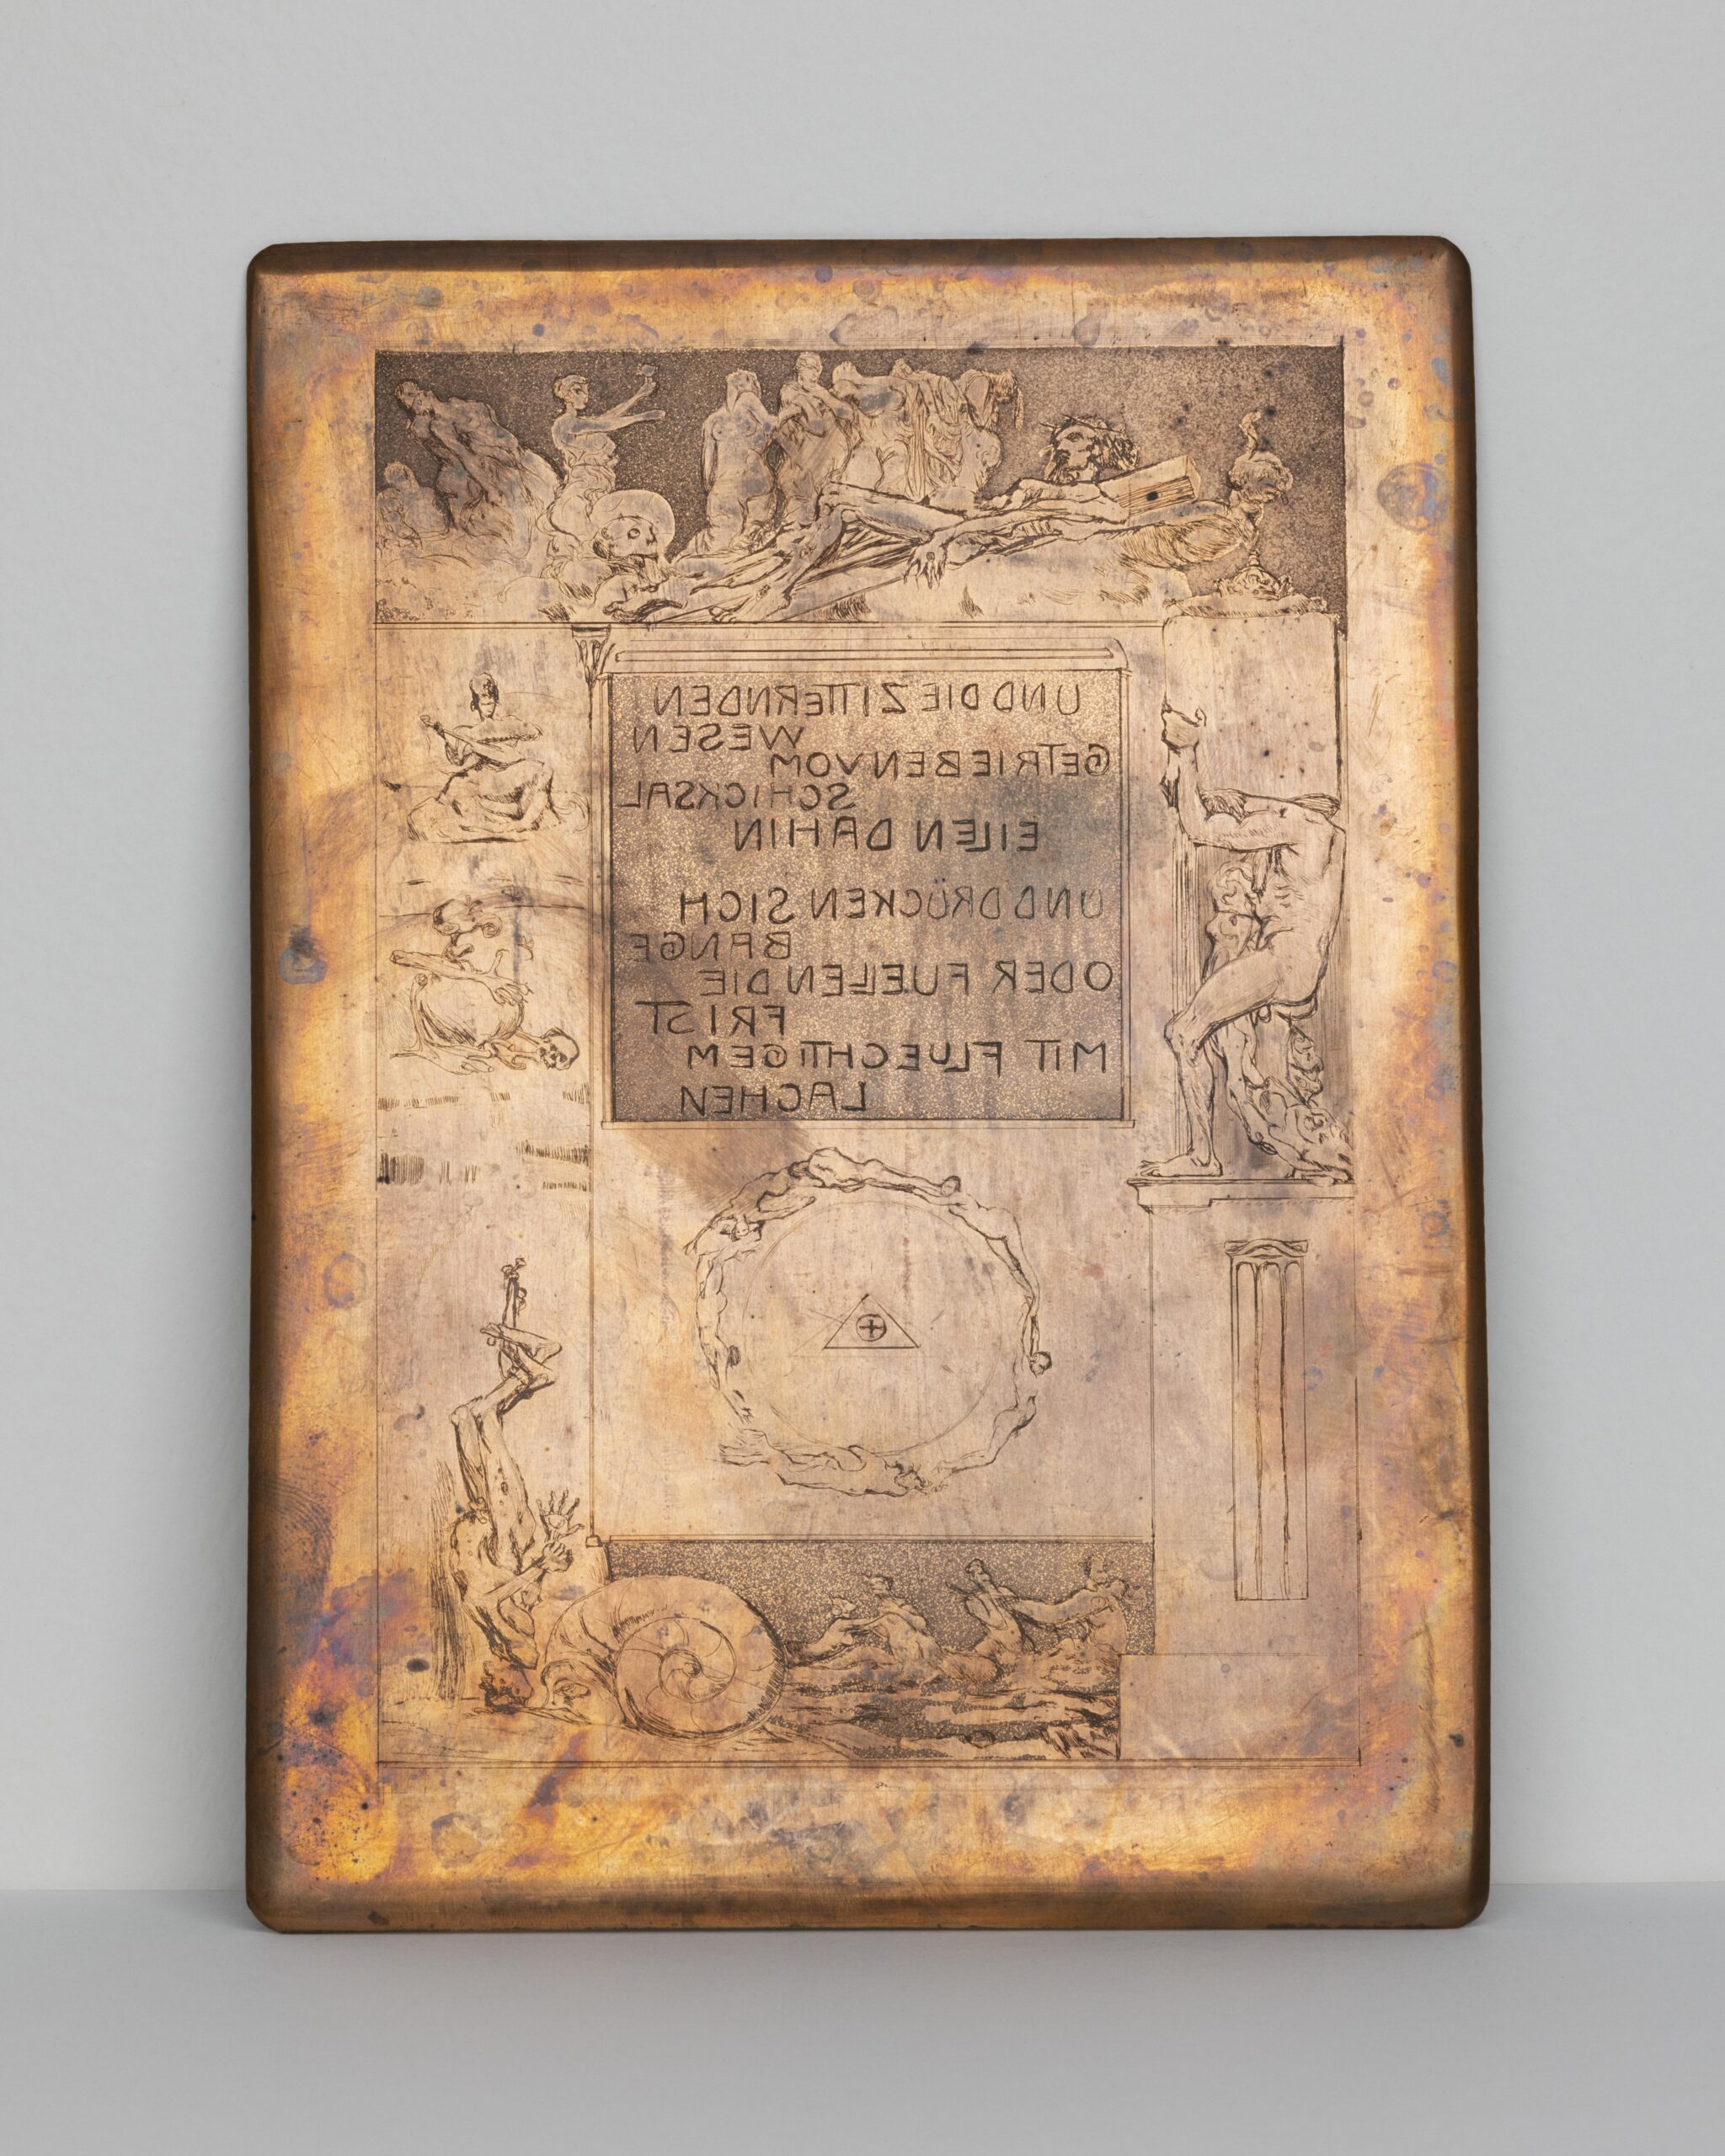 UND DIE ZITTERNDEN
WESEN
GETRIEBEN VOM
SCHICKSAL
EILEN DAHIN
UND DRÜCKEN SICH
BANGE
ODER FUELLEN DIE
FRIST
MIT FLUECHTIGEM
LACHEN